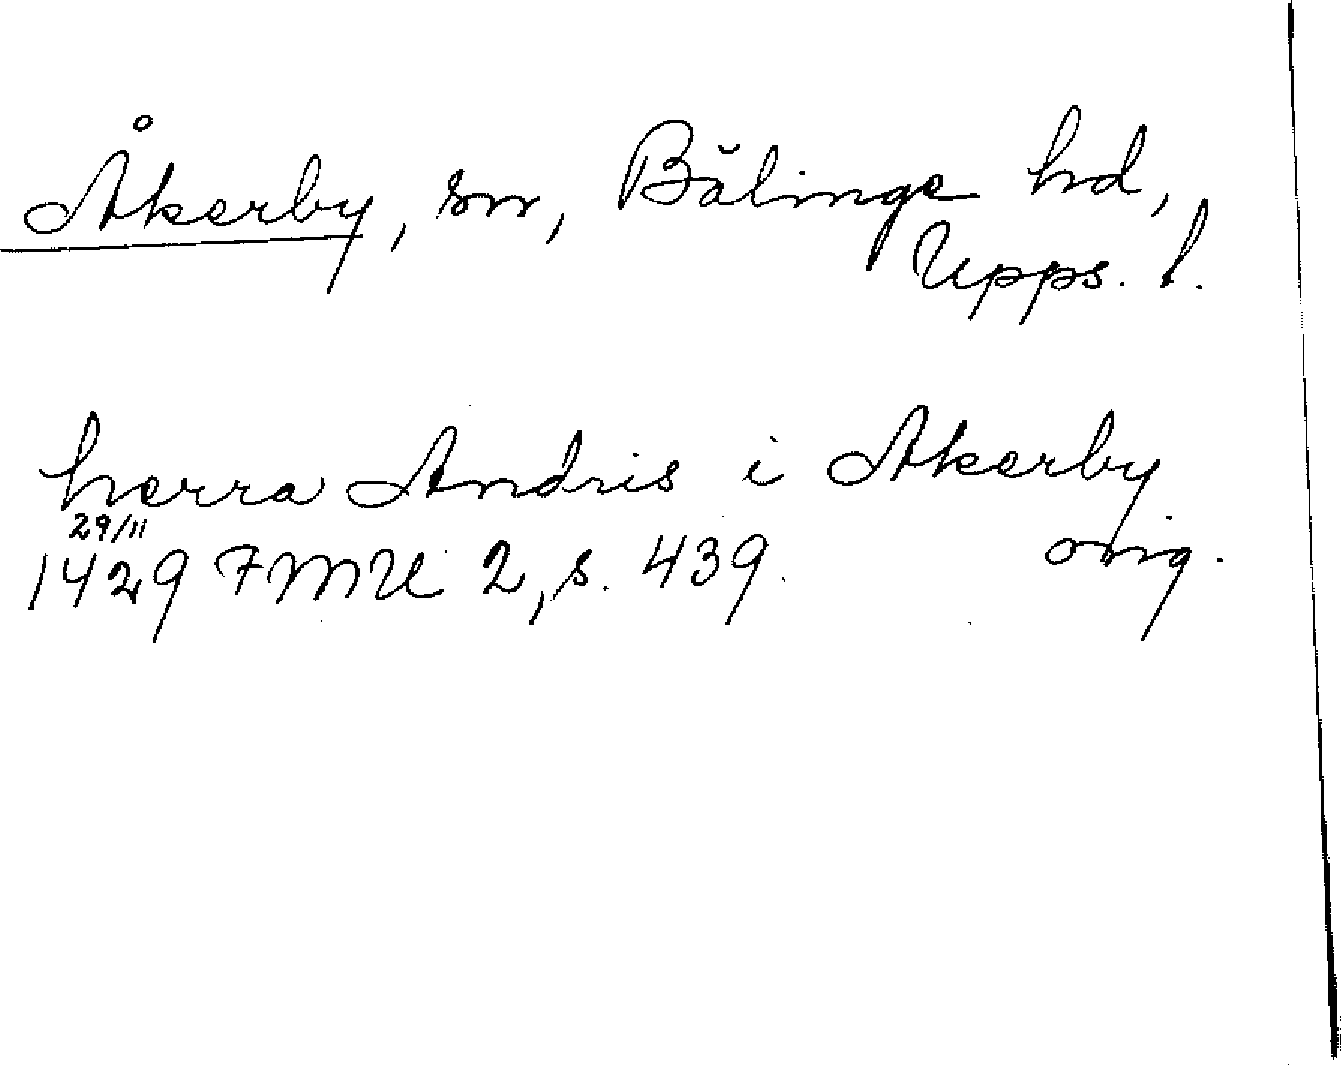 Åkerby, sn, Bälinge hd,
Upps. l.
herra Andris i Akerby
29/11
1429 FMU 2, s. 439. orig.